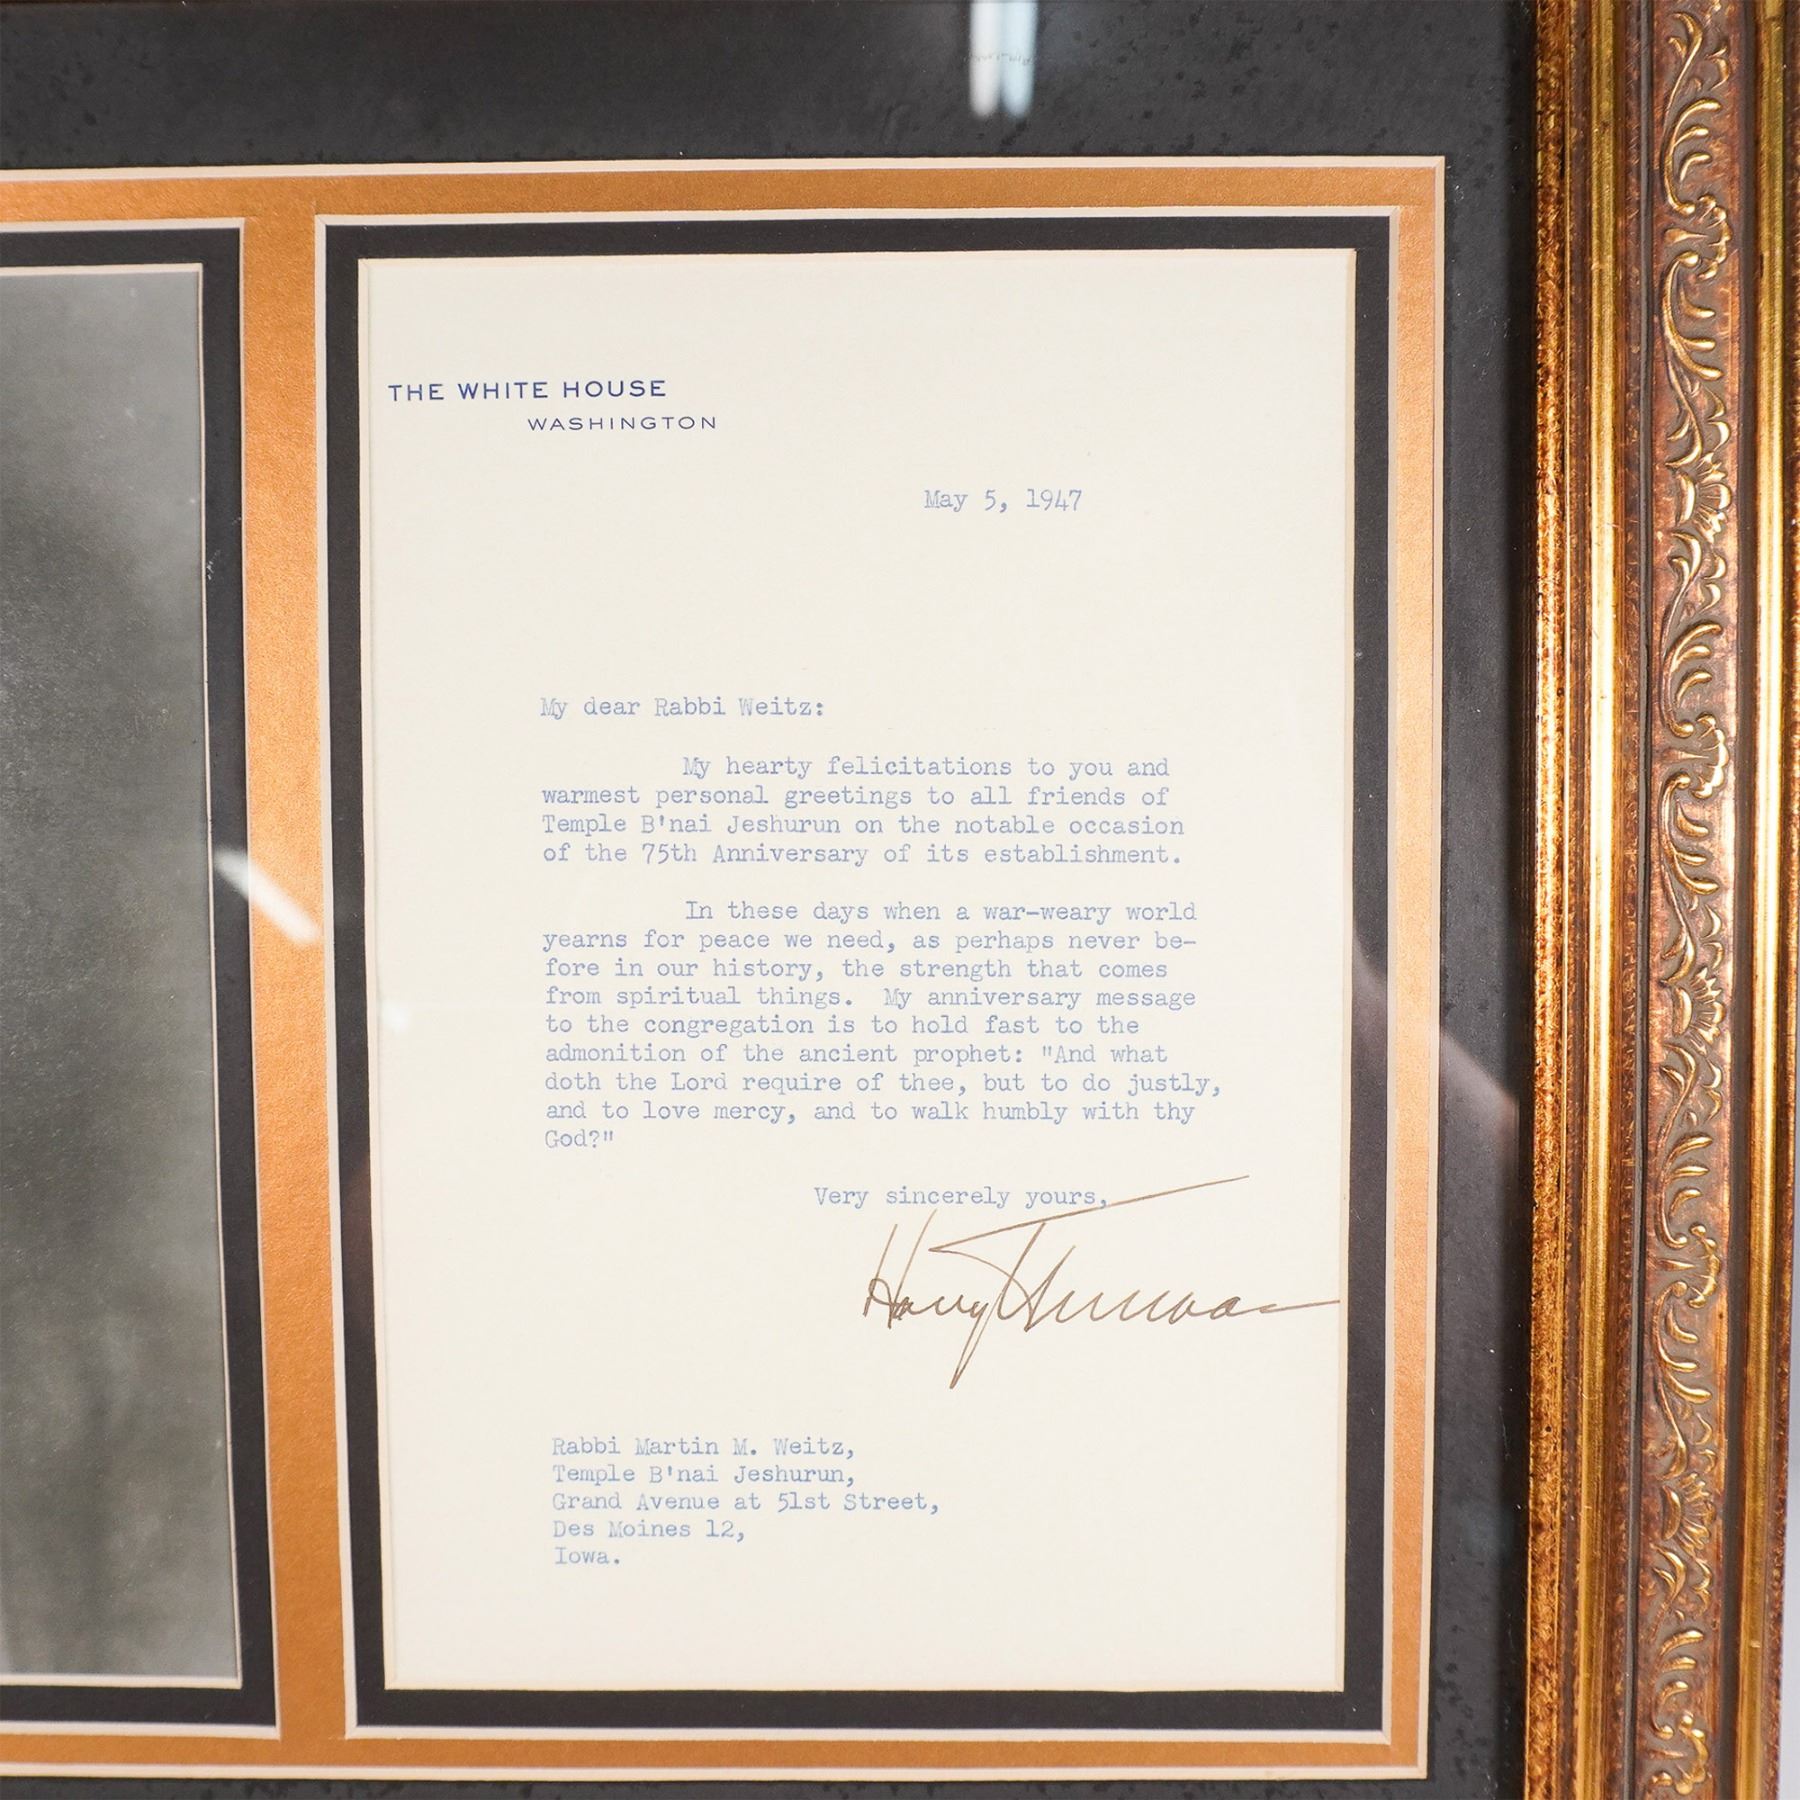 THE WHITE HOUSE
WASHINGTON
May 5, 1947
My dear Rabbi Weitz:
My hearty felicitations to you and
warmest personal greetings to all friends of
Temple B'nai Jeshurun on the notable occasion
of the 75th Anniversary of its establishment.
In these days when a war-weary world
yearns for peace we need, as perhaps never be-
fore in our history, the strength that comes
from spiritual things. My anniversary message
to the congregation is to hold fast to the
admonition of the ancient prophet: "And what
doth the Lord require of thee, but to do justly,
and to love mercy, and to walk humbly with thy
God?"
Very sincerely yours,
Harry Truman
Rabbi Martin M. Weitz,
Temple B'nai Jeshurun,
Grand Avenue at 51st Street,
Des Moines 12,
Iowa.